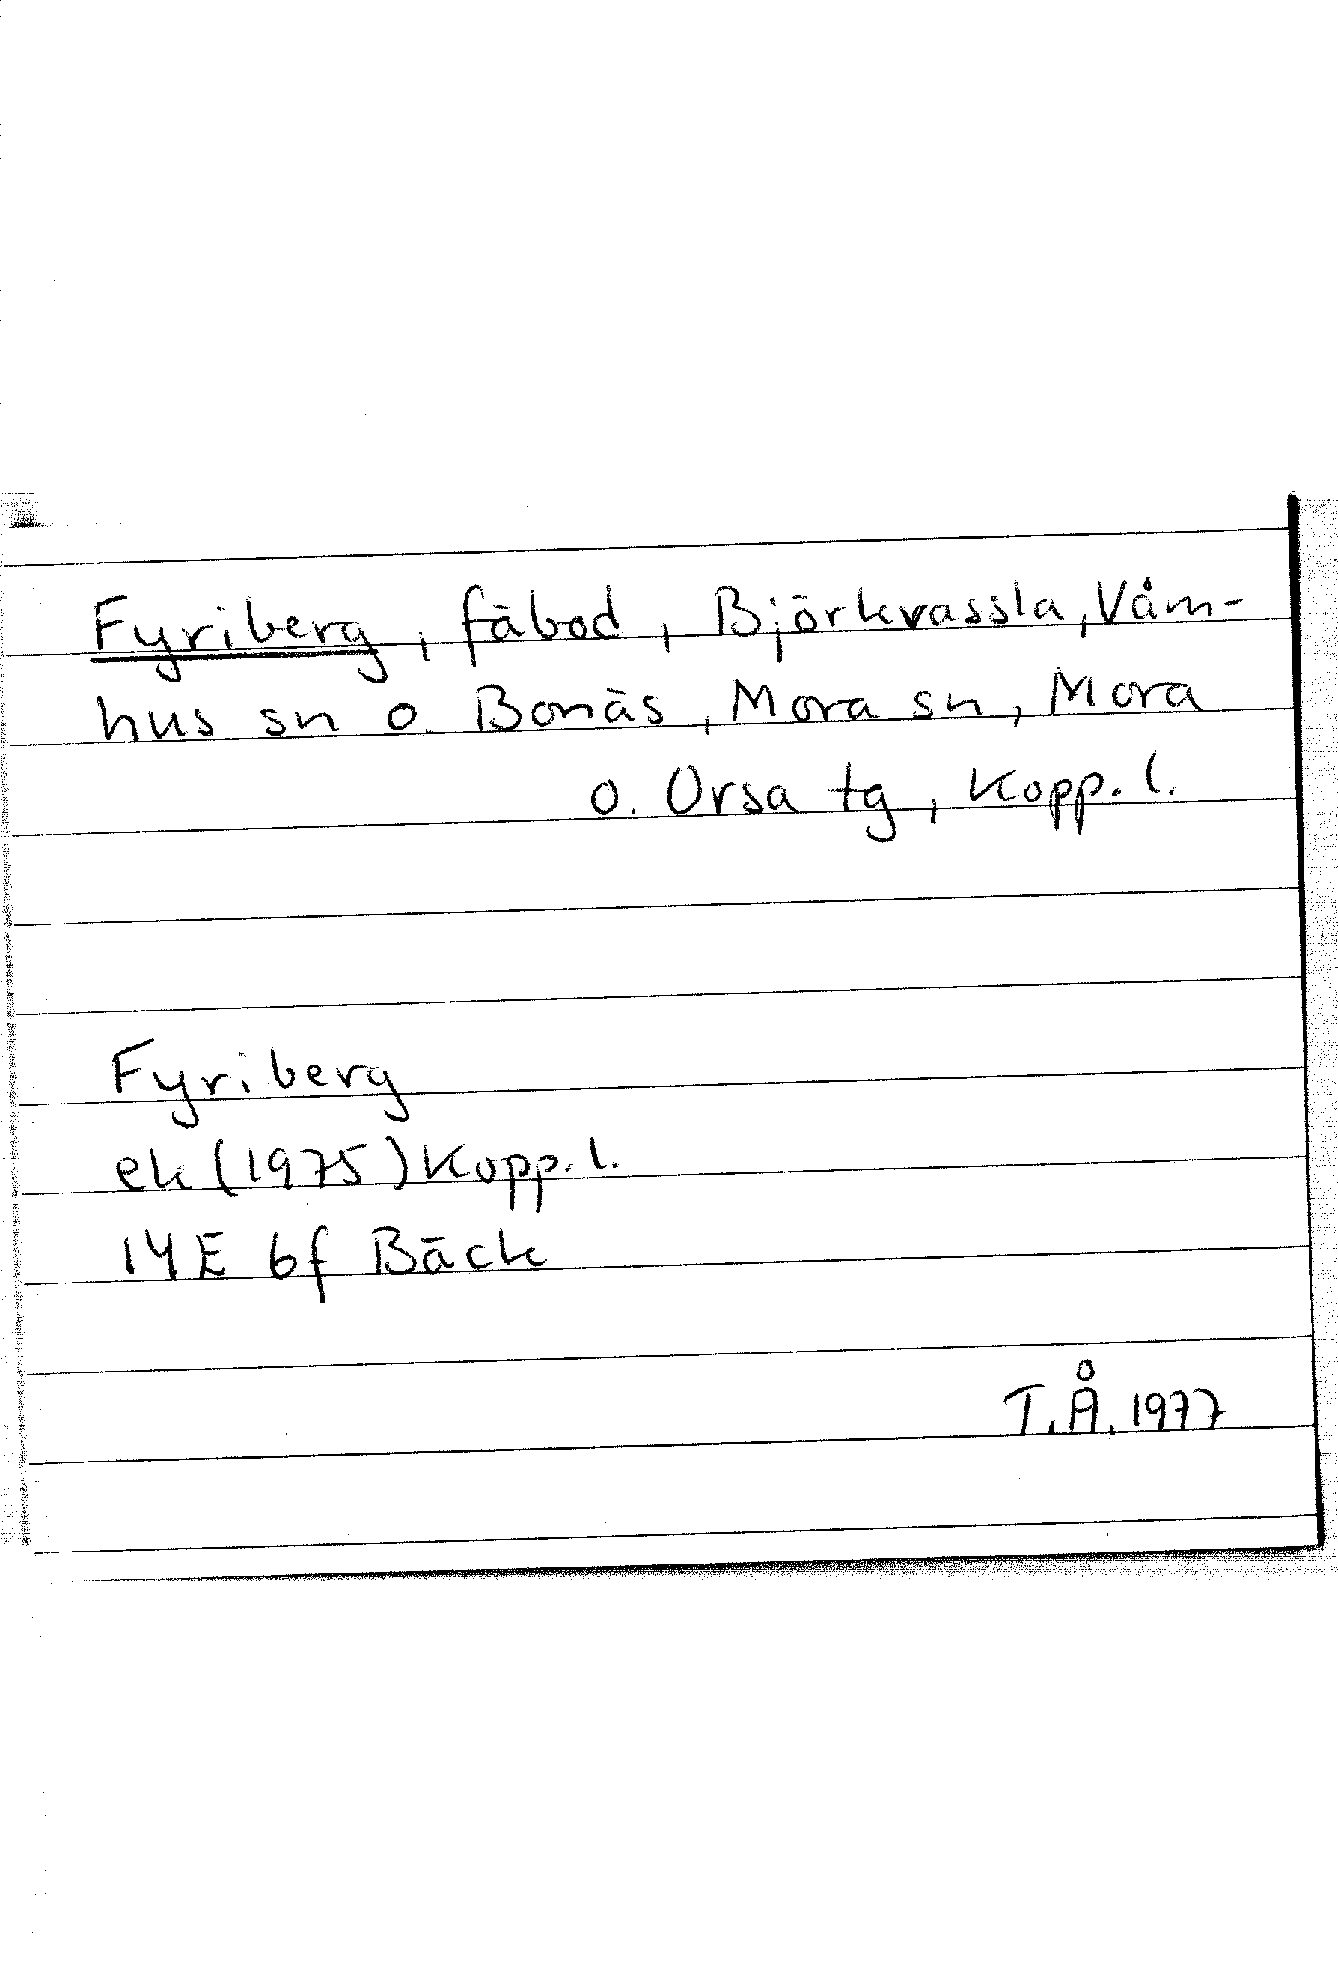 Fyriberg, fäbod, Björkvassla, Våm-
hus sn o. Bonäs, Mora sn, Mora
o. Orsa tg, Kopp. l.
Fyriberg
ek (1975) Kopp. l.
14E 6f Bäck
T.Å. 1977